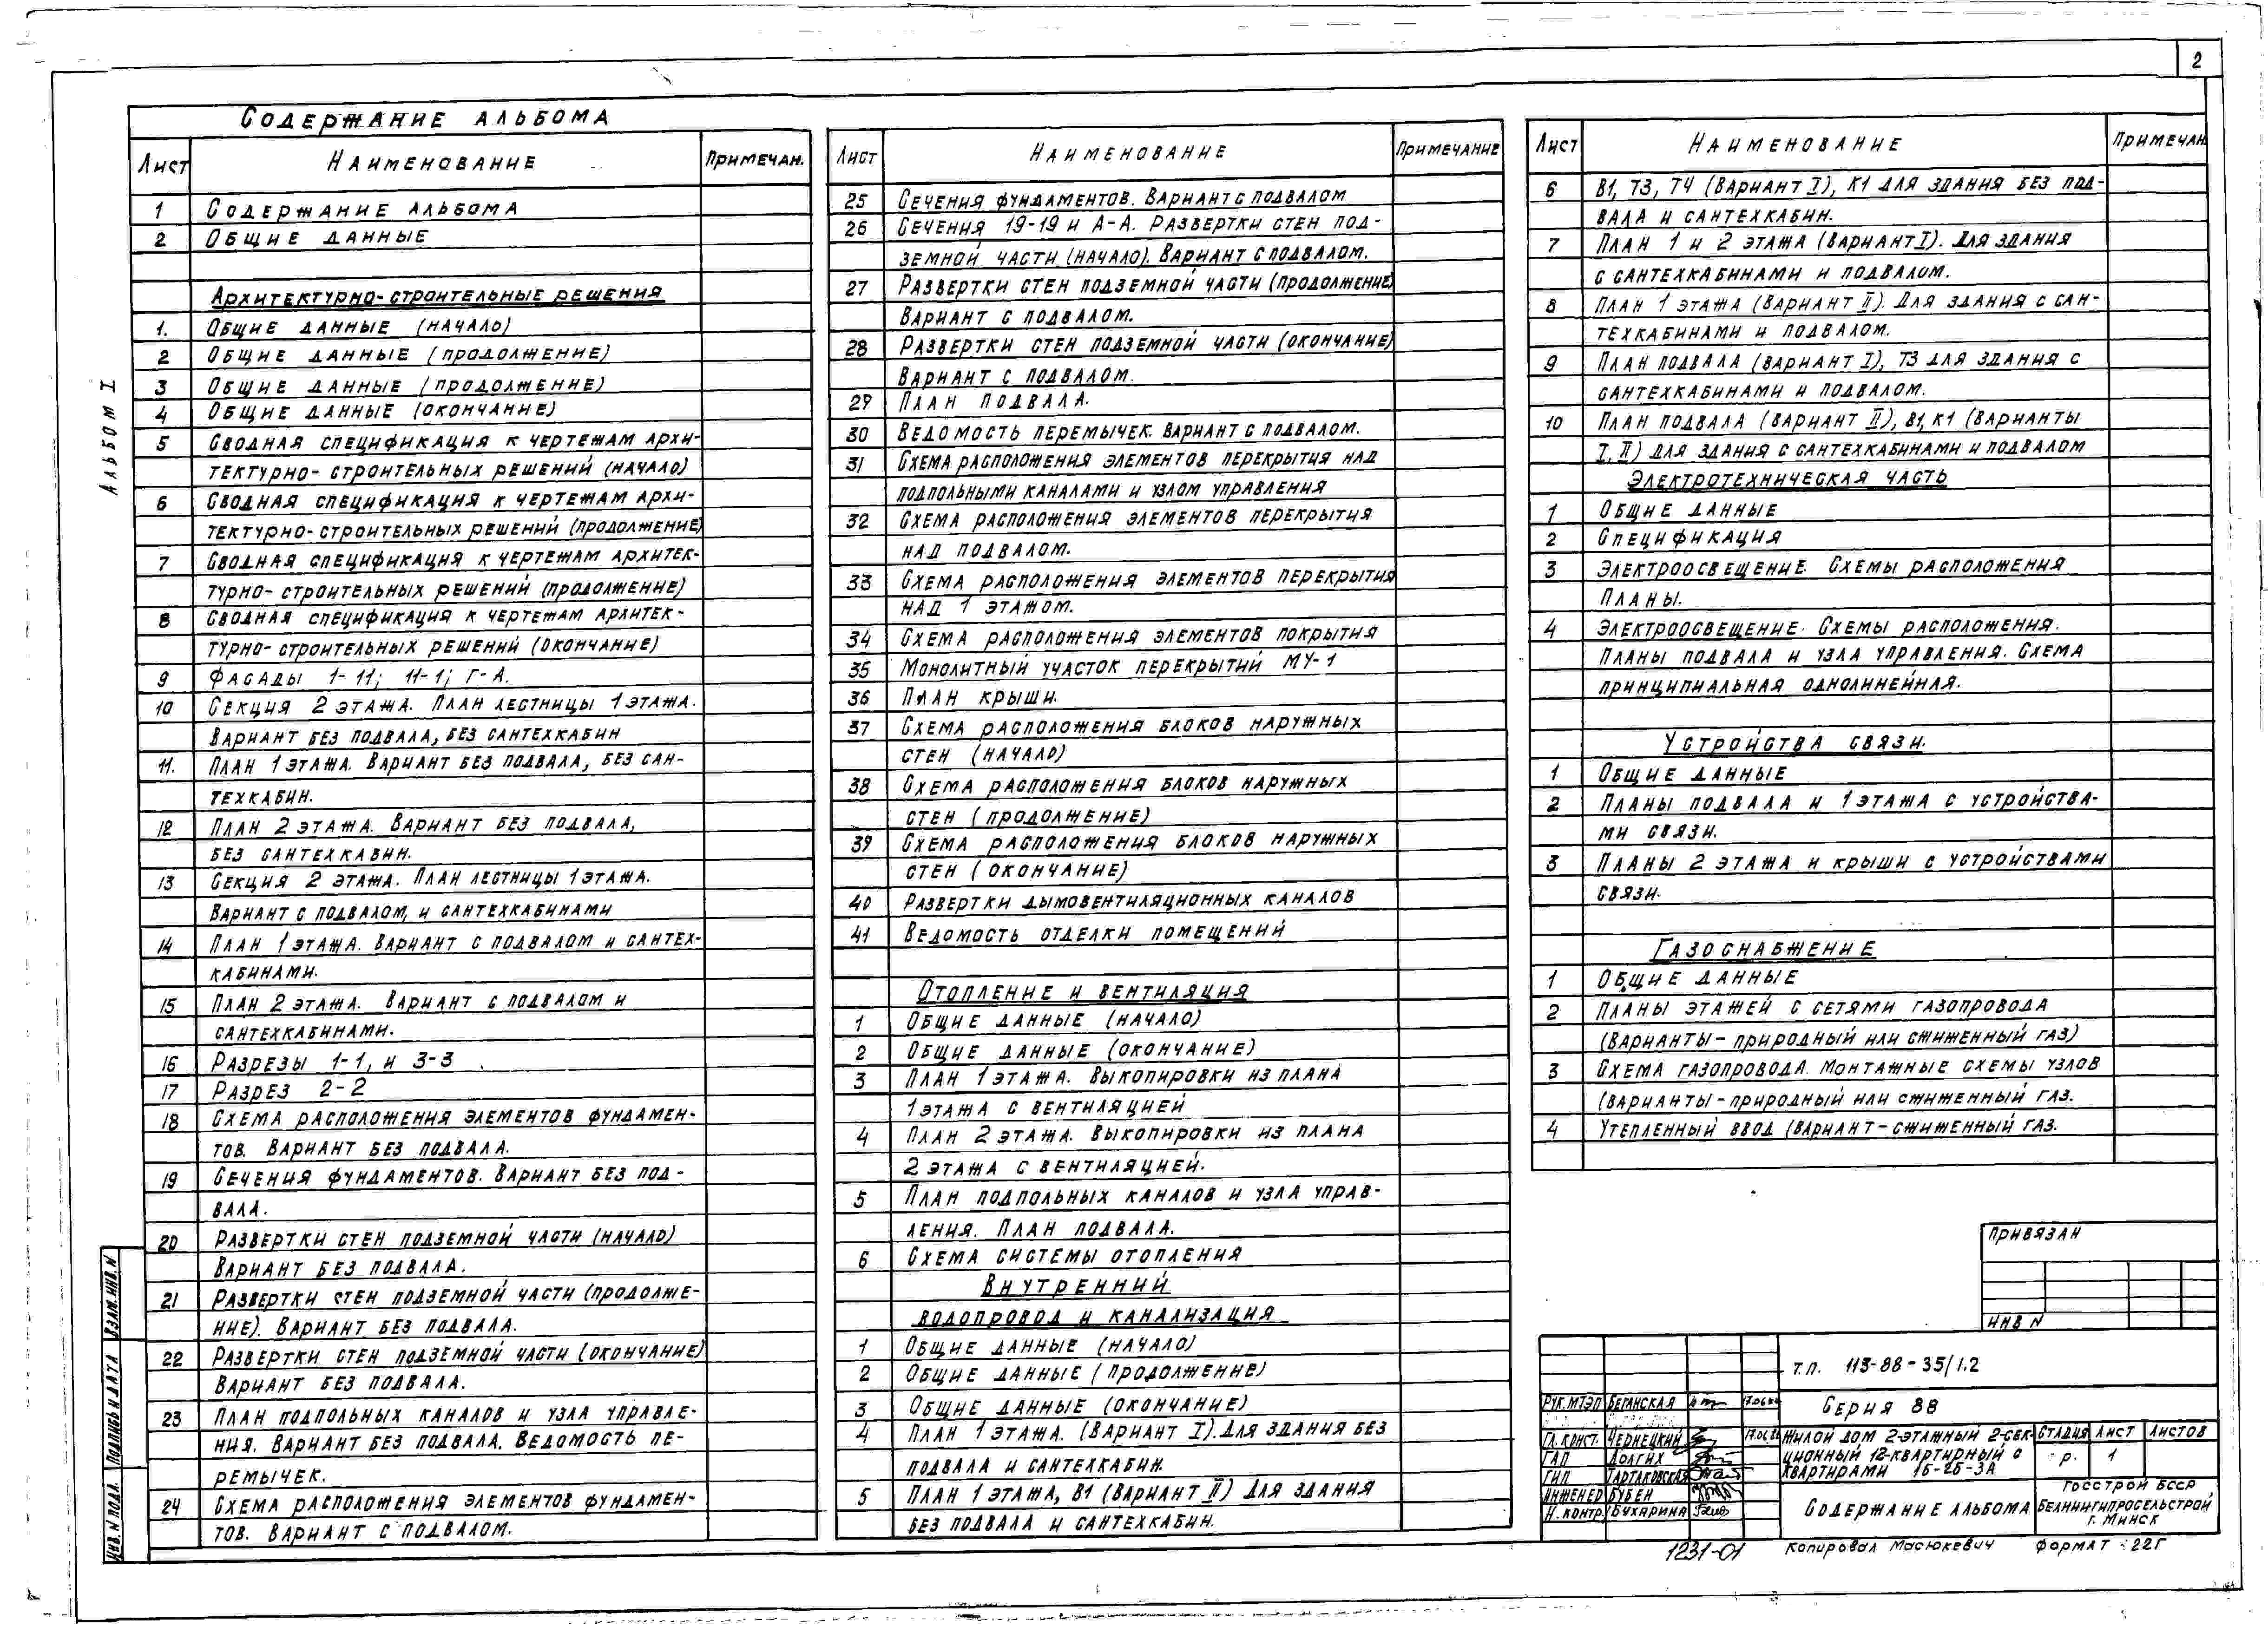 2
Содержание альбома
Лист Наименование Примечан.
1 Содержание альбома
2 Общие данные
Архитектурно-строительные решения
1. Общие данные (начало)
2 Общие данные (продолжение)
3 Общие данные (продолжение)
4 Общие данные (окончание)
5 Сводная спецификация к чертежам архи-
тектурно-строительных решений (начало)
6 Сводная спецификация к чертежам архи-
тектурно-строительных решений (продолжение)
7 Сводная спецификация к чертежам архитек-
турно-строительных решений (продолжение)
8 Сводная спецификация к чертежам архитек-
турно-строительных решений (окончание)
9 Фасады 1-11; 11-1; Г-А.
10 Секция 2 этажа. План лестницы 1 этажа.
Вариант без подвала, без сантехкабин
11. План 1 этажа. Вариант без подвала, без сан-
техкабин.
12 План 2 этажа. Вариант без подвала,
без сантехкабин.
13 Секция 2 этажа. План лестницы 1 этажа.
Вариант с подвалом, и сантехкабинами
14 План 1 этажа. Вариант с подвалом и сантех-
кабинами.
15 План 2 этажа. Вариант с подвалом и
сантехкабинами.
16 Разрезы 1-1, и 3-3
17 Разрез 2-2
18 Схема расположения элементов фундамен-
тов. Вариант без подвала.
19 Сечения фундаментов. Вариант без под-
вала.
20 Развертки стен подземной части (начало)
Вариант без подвала.
21 Развертки стен подземной части (продолже-
ние). Вариант без подвала.
22 Развертки стен подземной части (окончание)
Вариант без подвала.
23 План подпольных каналов и узла управле-
ния. Вариант без подвала. Ведомость пе-
ремычек.
24 Схема расположения элементов фундамен-
тов. Вариант с подвалом.
Лист Наименование Примечание
25 Сечения фундаментов. Вариант с подвалом
26 Сечения 19-19 и А-А. Развертки стен под-
земной части (начало). Вариант с подвалом.
27 Развертки стен подземной части (продолжение)
Вариант с подвалом.
28 Развертки стен подземной части (окончание)
Вариант с подвалом.
29 План подвала.
30 Ведомость перемычек. Вариант с подвалом.
31 Схема расположения элементов перекрытия над
подпольными каналами и узлом управления
32 Схема расположения элементов перекрытия
над подвалом.
33 Схема расположения элементов перекрытия
над 1 этажом.
34 Схема расположения элементов покрытия
35 Монолитный участок перекрытий МУ-1
36 План крыши.
37 Схема расположения блоков наружных
стен (начало)
38 Схема расположения блоков наружных
стен (продолжение)
39 Схема расположения блоков наружных
стен (окончание)
40 Развертки дымовентиляционных каналов
41 Ведомость отделки помещений
Отопление и вентиляция
1 Общие данные (начало)
2 Общие данные (окончание)
3 План 1 этажа. Выкопировки из плана
1 этажа с вентиляцией
4 План 2 этажа. Выкопировки из плана
2 этажа с вентиляцией.
5 План подпольных каналов и узла управ-
ления. План подвала.
6 Схема системы отопления
Внутренний
водопровод и канализация
1 Общие данные (начало)
2 Общие данные (продолжение)
3 Общие данные (окончание)
4 План 1 этажа. (Вариант I). Для здания без
подвала и сантехкабин.
5 План 1 этажа, В1 (Вариант II) Для здания
без подвала и сантехкабин.
Лист Наименование Примечан
6 В1, Т3, Т4 (Вариант I), К1 для здания без под-
вала и сантехкабин.
7 План 1 и 2 этажа (Вариант I). Для здания
с сантехкабинами и подвалом.
8 План 1 этажа (Вариант II). Для здания с сан-
техкабинами и подвалом.
9 План подвала (вариант I), Т3 для здания с
сантехкабинами и подвалом.
10 План подвала (Вариант II), В1, К1 (Варианты
I, II) для здания с сантехкабинами и подвалом
Электротехническая часть
1 Общие данные
2 Спецификация
3 Электроосвещение. Схемы расположения
Планы.
4 Электроосвещение. Схемы расположения.
Планы подвала и узла управления. Схема
принципиальная однолинейная.
Устройства связи.
1 Общие данные
2 Планы подвала и 1 этажа с устройства-
ми связи.
3 Планы 2 этажа и крыши с устройствами
связи.
Газоснабжение
1 Общие данные
2 Планы этажей с сетями газопровода
(варианты-природный или сжиженный газ)
3 Схема газопровода. Монтажные схемы узлов
(варианты-природный или сжиженный газ.
4 Утепленный ввод (вариант-сжиженный газ.
Альбом I
Взам. инв. N
Подпись и дата
Инв. N подл.
Привязан
Инв N
Т.П. 113-88-35/1.2
Серия 88
Рук. МТЭП Беганская
Гл. конст. Чернецкий
ГАП Долгих
ГИП Тартаковская
Инженер Бубен
Н. контр. Бухарина
Жилой дом 2-этажный 2-сек-
ционный 12-квартирный с
квартирами 1Б-2Б-3А
Стадия Лист Листов
р. 1
Содержание альбома
Госстрой БССР
Белниигипросельстрой
г. Минск
1231-01
Копировал Масюкевич
Формат 22Г